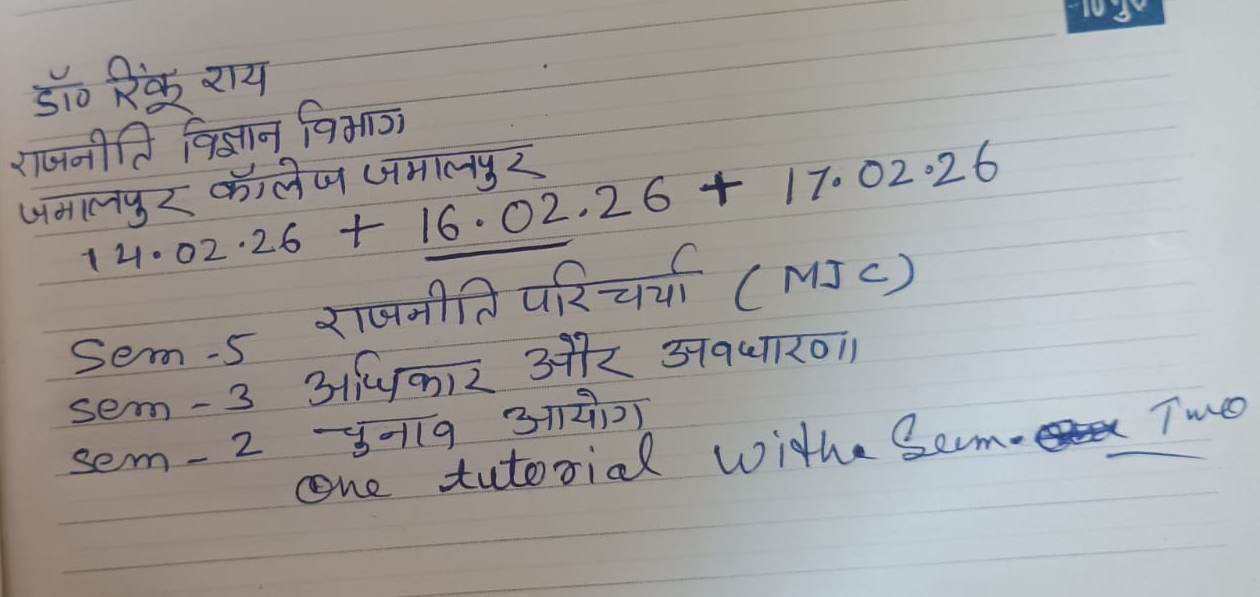 डॉ० रिंकू राय
राजनीति विज्ञान विभाग
जमालपुर कॉलेज जमालपुर
14.02.26 + 16.02.26 + 17.02.26
Sem-5 राजनीति परिचर्या (MJC)
sem-3 अधिकार और अवधारणा
sem-2 चुनाव आयोग
One tutorial withe Sem. Two